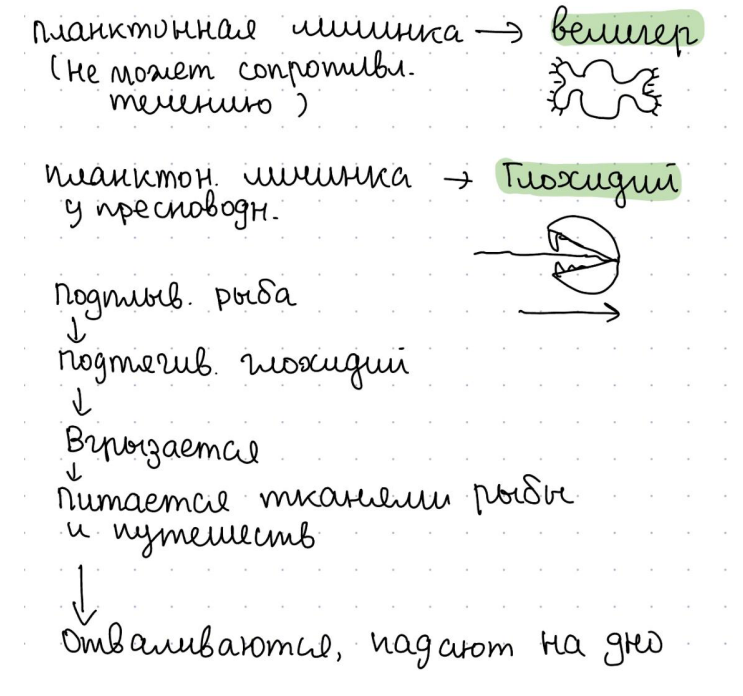 планктонная личинка → велигер
(не может сопротивл.
течению)
планктон. личинка → Глохидий
у пресноводн.
Подплыв. рыба
↓
Подтягив. глохидий
↓
Вгрызается
↓
Питается тканями рыбы
и путешеств
↓
Отваливаются, падают на дно